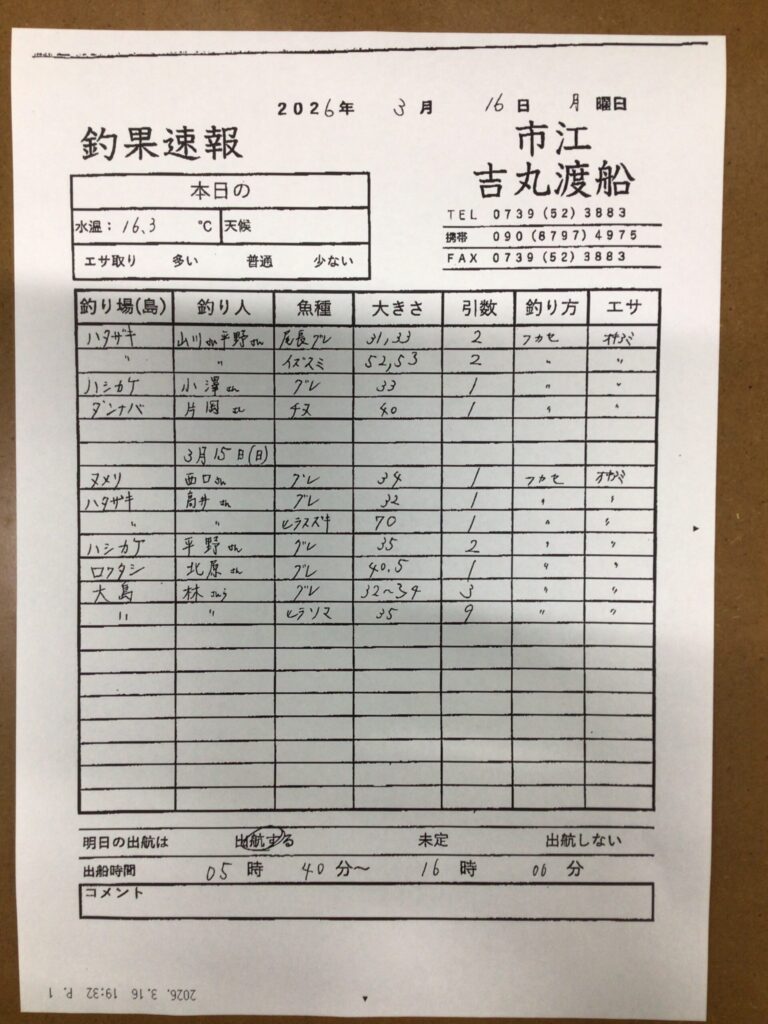 2026年 3月 16日 月曜日
釣果速報
市江
吉丸渡船
本日の
水温：16.3 ℃ 天候
エサ取り 多い 普通 少ない
TEL 0739(52)3883
携帯 090(8797)4975
FAX 0739(52)3883
釣り場(島) 釣り人 魚種 大きさ 引数 釣り方 エサ
ハタザキ 山川さん平野さん 尾長グレ 31,33 2 フカセ オキアミ
〃 〃 イズスミ 52,53 2 〃 〃
ハシカケ 小澤さん グレ 33 1 〃 〃
ダンナバ 片岡さん チヌ 40 1 〃 〃
3月15日(日)
ヌメリ 西口さん グレ 34 1 フカセ オキアミ
ハタザキ 高井さん グレ 32 1 〃 〃
〃 〃 ヒラスズキ 70 1 〃 〃
ハシカケ 平野さん グレ 35 2 〃 〃
ロクタシ 北原さん グレ 40.5 1 〃 〃
大島 林さん グレ 32〜34 3 〃 〃
〃 〃 ヒラソマ 35 9 〃 〃
明日の出航は 出航する 未定 出航しない
出船時間 05時 40分〜 16時 00分
コメント
2026. 3.16 19:32 P. 1